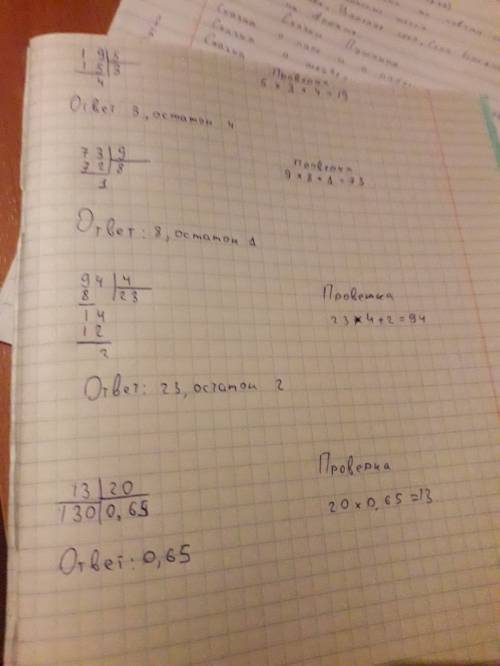 Сказка
Сказки Пушкина
Сказка о
Сказка о
1 9 | 5
1 5 | 3
4
Проверка
5 × 3 + 4 = 19
Ответ 3, остаток 4
7 3 | 9
7 2 | 8
1
Проверка
9 × 8 + 1 = 73
Ответ: 8, остаток 1
94 | 4
8 | 23
14
12
2
Проверка
23 × 4 + 2 = 94
Ответ: 23, остаток 2
13 | 20
130 | 0,65
Проверка
20 × 0,65 = 13
Ответ: 0,65